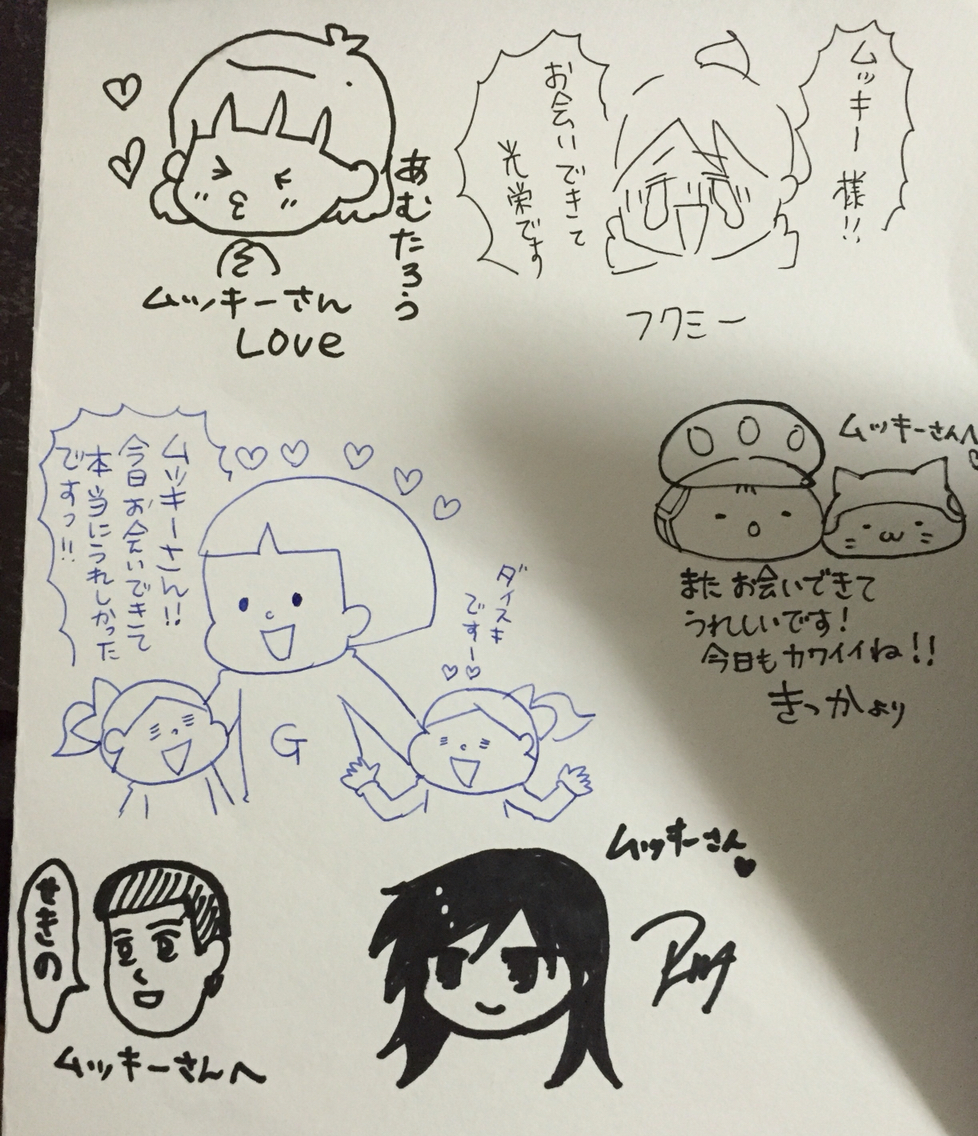 あむたろう
ムッキーさん
Love
ムッキー様!!
お会いできて
光栄です
フクミー
ムッキーさん!!
今日お会いできて
本当にうれしかった
ですっ!!
ダイスキ
ですー
G
ムッキーさんへ
また お会いできて
うれしいです!
今日もカワイイね!!
きっかより
せきの
ムッキーさんへ
ムッキーさん